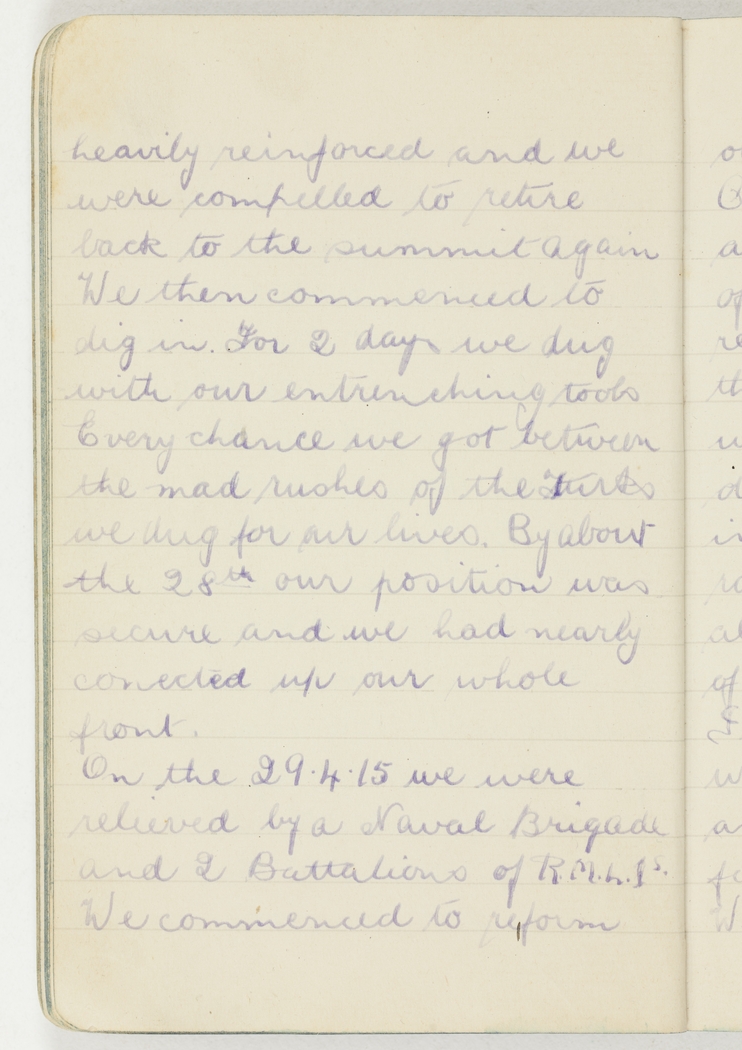 heavily reinforced and we
were compelled to retire
back to the summit again
We then commenced to
dig in. For 2 days we dug
with our entrenching tools
Every chance we got between
the mad rushes of the Turks
we dug for our lives. By about
the 28th our position was
secure and we had nearly
conected up our whole
front.
On the 29.4.15 we were
relieved by a Naval Brigade
and 2 Battalions of R.M.L.Is.
We commenced to reform